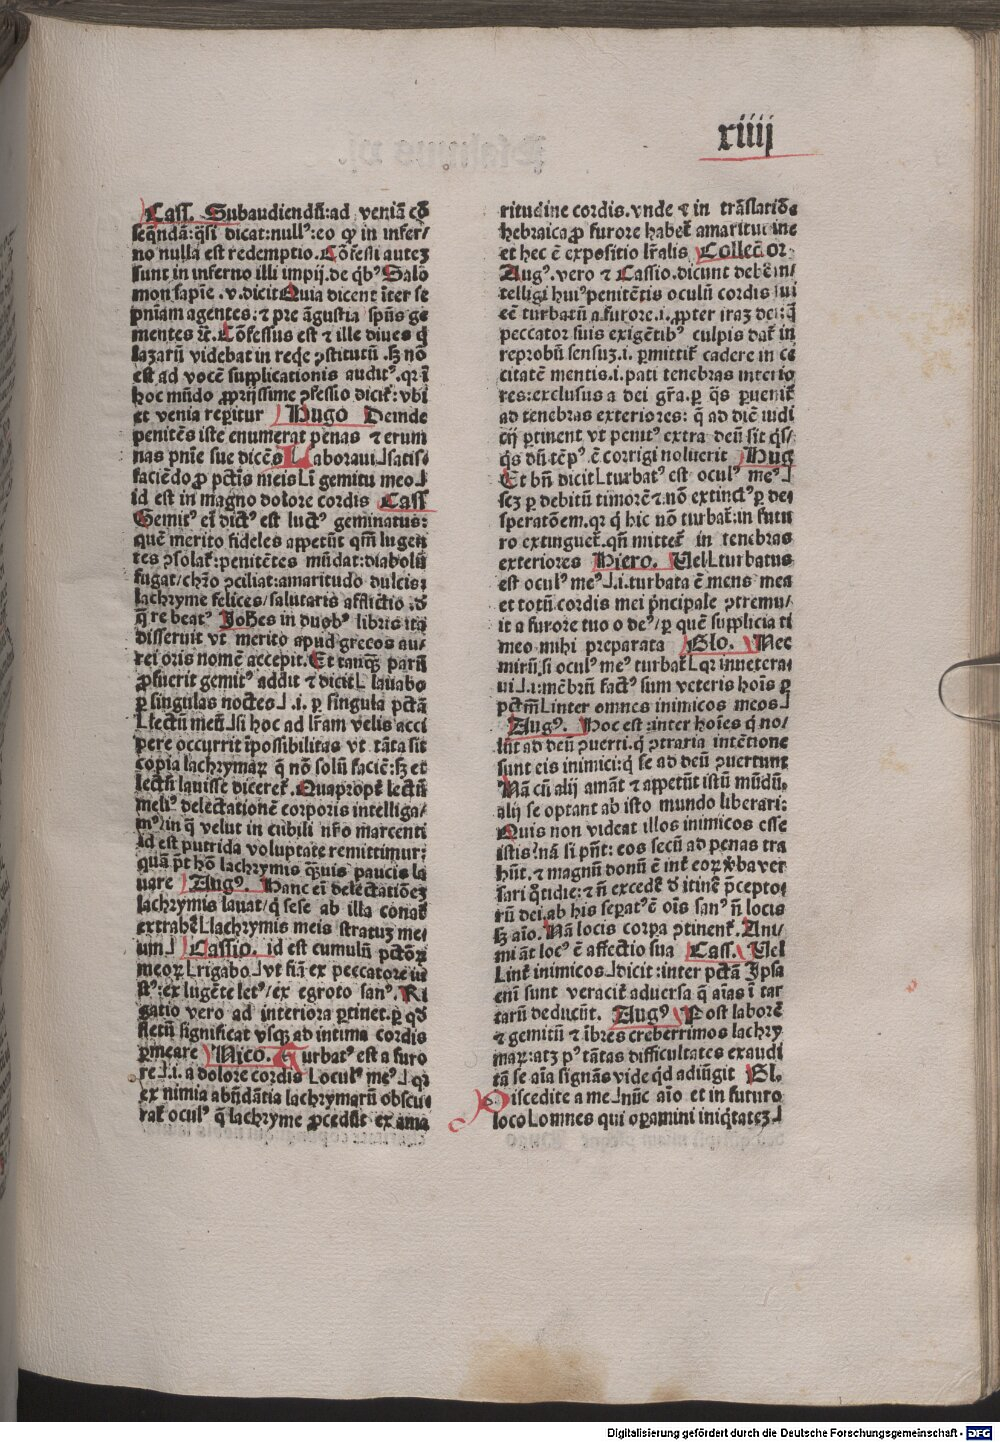 xiiij
Cass. Subaudiendũ:ad veniã cõ
seq̃ndã:q̃si dicat:null⁹:eo ꝙ in infer/
no nulla est redemptio. Cõfessi autez
sunt in inferno illi impij.de qb⁹ Salo
mon sapiẽ.v.dicit Quia dicent iter se
pniam agentes:⁊ pre ãgustia spũs ge
mentes ⁊c̃. Cõfessus est ⁊ ille diues q̃
lazarũ videbat in reqe ꝯstitutũ.sꝫ nõ
est ad vocẽ supplicationis audit⁹.qꝛ ĩ
hoc mũdo ꝓprijssime ꝯfessio dicit̃:vbi
et venia reperitur Hugo Deinde
penitẽs iste enumerat penas ⁊ erum
nas pnie sue dicẽs Laboraui⅃satis/
faciẽdo ꝓ pctĩs meis Lĩ gemitu meo⅃
id est in magno dolore cordis Cass
Gemit⁹ ei dict⁹ est luct⁹ geminatus:
quẽ merito fideles appetũt qm̃ lugen
tes ꝯsolat̃:penitẽtes mũdat:diabolũ
fugat/chr̃o ꝯciliat:amaritudo dulcis:
lachryme felices/salutaris afflictio.d̃
q̃ re beat⁹ Johẽs in duob⁹ libris ita
disseruit vt merito apud grecos au/
rei oris nomẽ accepit. Et tanqꝫ parũ
ꝓfuerit gemit⁹ addit ⁊ dicit L lauabo
ꝑ singulas noctes⅃.i. ꝑ singula pctã
Llectũ meũ⅃si hoc ad lr̃am velis acci
pere occurrit ĩpossibilitas vt tãta sit
copia lachrymaꝝ q̃ nõ solũ faciẽ:sꝫ et
lectũ lauisse diceret̃. Quapropt̃ lectũ
meli⁹ delectationẽ corporis intelliga/
m⁹/in q̃ velut in cubili nr̃o marcenti
id est putrida voluptate remittimur:
quã p̃t hõ lachrymis q̃uis paucis la
uare Aug⁹. Hanc ei delectationẽz
lachrymis lauat/q̃ sese ab illa conat̃
extrahẽ Llachrymis meis stratuz me/
um⅃ Cassio. id est cumulũ pctõꝝ
meoꝝ L rigabo⅃vt fiã ex peccatore iu
st⁹:ex lugẽte let⁹/ex egroto san⁹. Ri
gatio vero ad interiora ꝑtinet.ꝑ qd̃
fletũ significat vsqꝫ ad intima cordis
ꝑmeare Nico. Turbat⁹ est a furo
re⅃.i.a dolore cordis Locul⁹ me⁹⅃ qꝛ
ex nimia abũdãtia lachrymarũ obscu
rat̃ ocul⁹ q̃ lachryme ꝓcedũt ex ama
ritudine cordis.vnde ⁊ in trãslatiõe
hebraica ꝓ furore habet̃ amaritudine
et hec ẽ expositio lr̃alis Collectoꝛ
Aug⁹. vero ⁊ Cassio.dicunt debẽ in/
telligi hui⁹ penitẽtis oculũ cordis sui
eẽ turbatũ a furore.i. ꝓpter iraꝫ dei:q̃
peccator suis exigẽtib⁹ culpis dat̃ in
reprobũ sensuꝫ.i. ꝑmittit̃ cadere in ce
citatẽ mentis.i.pati tenebras interio
res:exclusus a dei gr̃a.ꝑ q̃s ꝑuenit̃
ad tenebras exteriores: q̃ ad diẽ iudi
cij ꝑtinent vt penit⁹ extra deũ sit q̃s/
q̃s dũ tẽp⁹ ẽ corrigi noluerit Hug
Et bñ dicit L turbat⁹ est ocul⁹ me⁹⅃
scꝫ ꝑ debitũ timorẽ ⁊ nõ extinct⁹ ꝑ de/
speratõem.qꝛ q̃ hic nõ turbat̃:in futu
ro extinguet̃.qñ mittet̃ in tenebras
exteriores Hiero. Vel L turbatus
est ocul⁹ me⁹⅃.i.turbata ẽ mens mea
et totũ cordis mei p̃ncipale ꝯtremu/
it a furore tuo o de⁹/ꝑ quẽ supplicia ti
meo mihi preparata Glo. Nec
mirũ si ocul⁹ me⁹ turbat̃ L qꝛ inuetera/
ui⅃.i:mẽbrũ fact⁹ sum veteris hoĩs ꝑ
pctm̃ L inter omnes inimicos meos⅃
Aug⁹. Hoc est:inter hoĩes q̃ no/
lũt ad deũ ꝯuerti.q̃ ꝯtraria intẽtione
sunt eis inimici:q̃ se ad deũ ꝯuertunt
Nã cũ alij amãt ⁊ appetũt istũ mũdũ,
alij se optant ab isto mundo liberari:
Quis non videat illos inimicos esse
istis?nã si pñt: eos secũ ad penas tra
hũt.⁊ magnũ donũ ẽ int̃ eoꝝ v̾ba ver
sari q̃tidie:⁊ ñ excedẽ d̃ itinẽ p̃cepto/
rũ dei.ab his sepat⁹ ẽ oĩs san⁹ ñ locis
sꝫ aĩo. Nã locis corpa ꝯtinent̃. Ani/
mi ãt loc⁹ ẽ affectio sua Cass. Vel
Lint̃ inimicos⅃dicit:inter pctã Ipsa
enĩ sunt veracit̃ aduersa q̃ aĩas ĩ tar
tarũ deducũt. Aug⁹ Post laborẽ
⁊ gemitũ ⁊ ĩbres creberrimos lachry
maꝝ:atqꝫ p⁹ tãtas difficultates exaudi
tã se aĩa signãs vide qd̃ adiũgit Gl.
Discedite a me⅃nũc aĩo et in futuro
loco L omnes qui oꝑamini iniq̃tateꝫ⅃
Digitalisierung gefördert durch die Deutsche Forschungsgemeinschaft - DFG